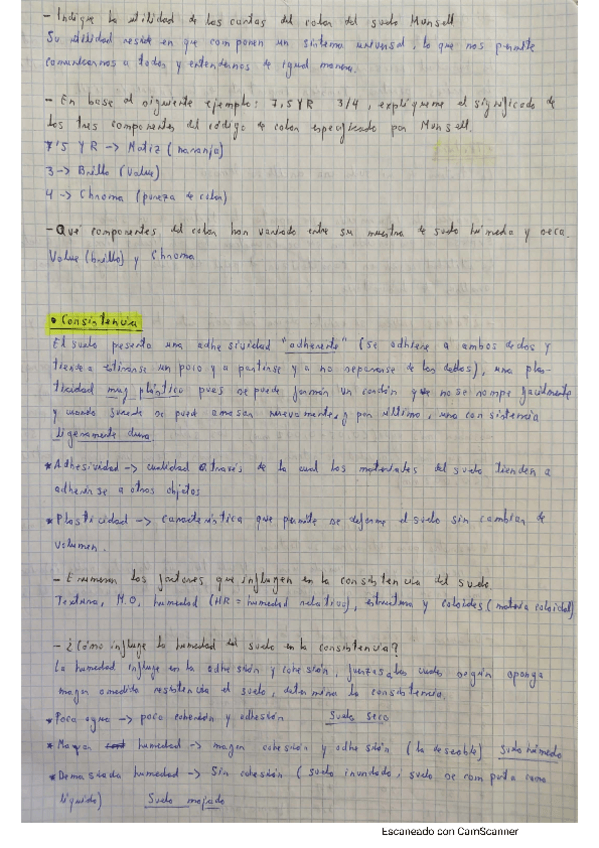 - Indique la utilidad de las cartas del color del suelo Munsell.
Su utilidad reside en que componen un sistema universal, lo que nos permite
comunicarnos a todos y entendernos de igual manera.
- En base al siguiente ejemplo: 7,5 YR 3/4, explíqueme el significado de
los tres componentes del código de color especificado por Munsell.
7,5 YR -> Matiz (naranja)
3 -> Brillo (Value)
4 -> Chroma (pureza de color)
- Qué componentes del color han variado entre su muestra de suelo húmeda y seca.
Value (brillo) y Chroma
• Consistencia
El suelo presenta una adhesividad "adherente" (se adhiere a ambos dedos y
tiende a estirarse un poco y a partirse y a no separarse de los dedos), una plas-
ticidad muy plástico pues se puede formar un cordón que no se rompe facilmente
y cuando sucede se puede amasar nuevamente, y por último, una consistencia
ligeramente dura.
* Adhesividad -> cualidad a través de la cual los materiales del suelo tienden a
adherirse a otros objetos
* Plasticidad -> característica que permite se deforme el suelo sin cambiar de
volumen.
- Enumeran los factores que influyen en la consistencia del suelo.
Textura, M.O, humedad (HR = humedad relativa), estructura y coloides (materia coloidal)
- ¿Cómo influye la humedad del suelo en la consistencia?
La humedad influye en la adhesión y cohesión, fuerzas a las cuales según oponga
mayor o menor resistencia el suelo, determina la consistencia.
* Poca agua -> poca cohesión y adhesión Suelo seco
* Mayor humedad -> mayor cohesión y adhesión (la deseable) Suelo húmedo
* Demasiada humedad -> Sin cohesión (suelo inundado, suelo se comporta como
líquido) Suelo mojado
Escaneado con CamScanner